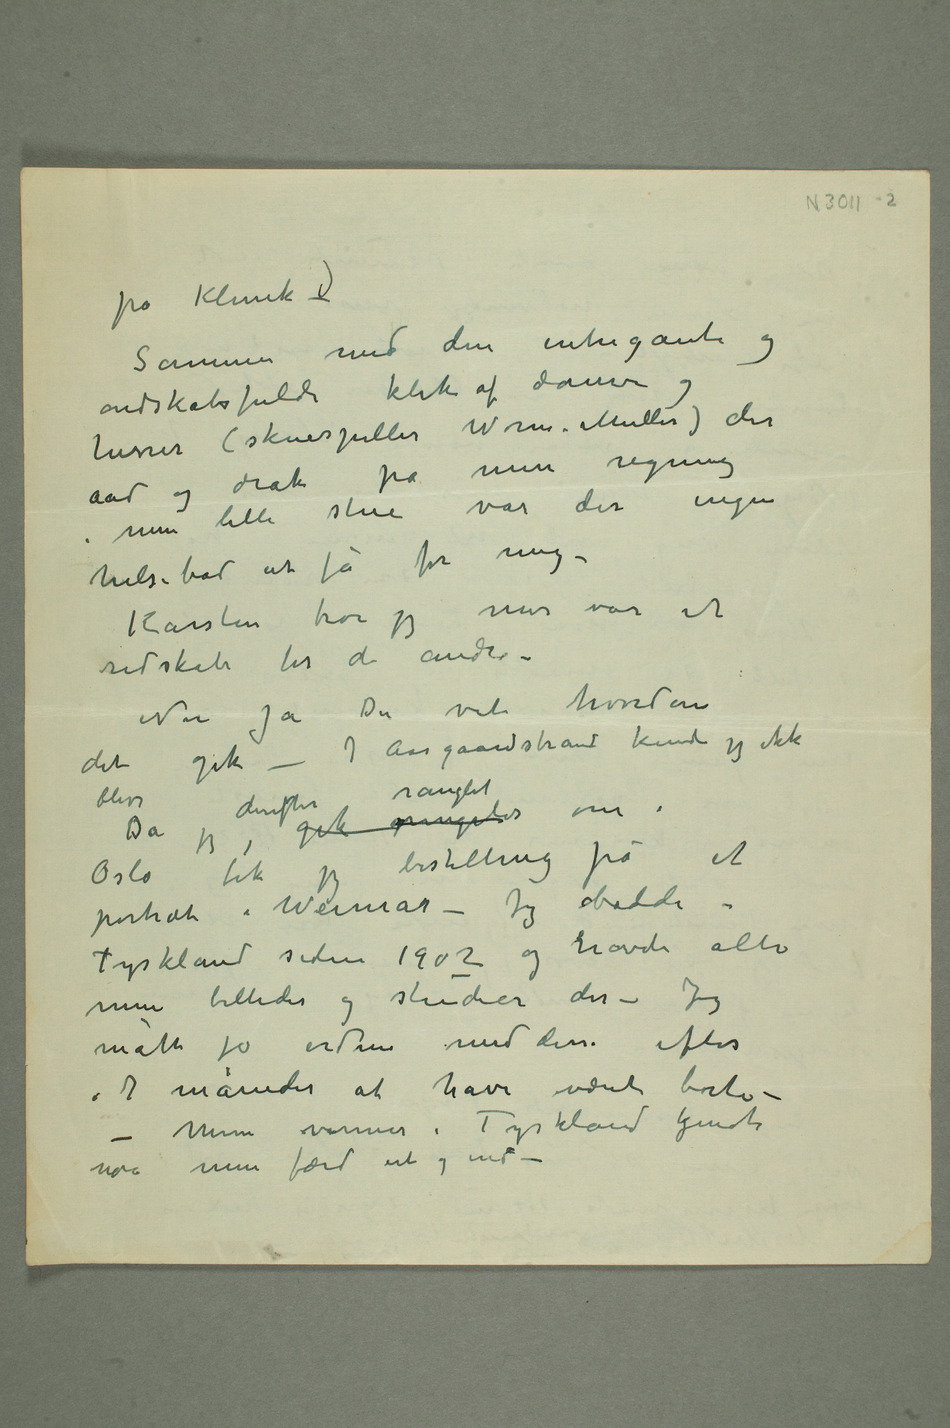 N 3011 -2
på Klinik)
Sammen med den intrigante og
ondskabsfulde klik af damer og
herrer (skuespiller Worm-Müller) der
aad og drak på min regning
i min lille stue var der ingen
helsebod at få for mig –
Karsten tror jeg mer var et
redskab for de andre –
Nu Ja Du vet hvordan
det gik – I Aasgaardstrand kunde jeg ikke
blive
Da jeg derefter ranglet om i
Oslo fik jeg bestilling på et
portræt i Weimar – Jeg bodde i
Tyskland siden 1902 og havde alle
mine billeder og studier der – Jeg
måtte jo ordne med disse efter
i 7 måneder at have været borte –
– Mine venner i Tyskland kjendte
nøie min færd ut og ind –